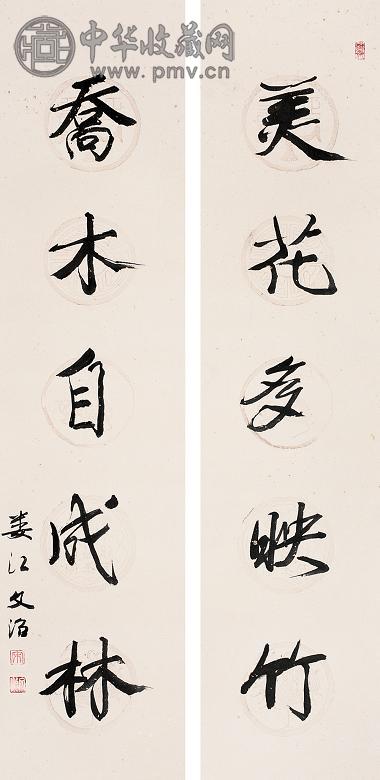 中华收藏网
www.pmv.cn
美花多映竹
喬木自成林
娄江文治